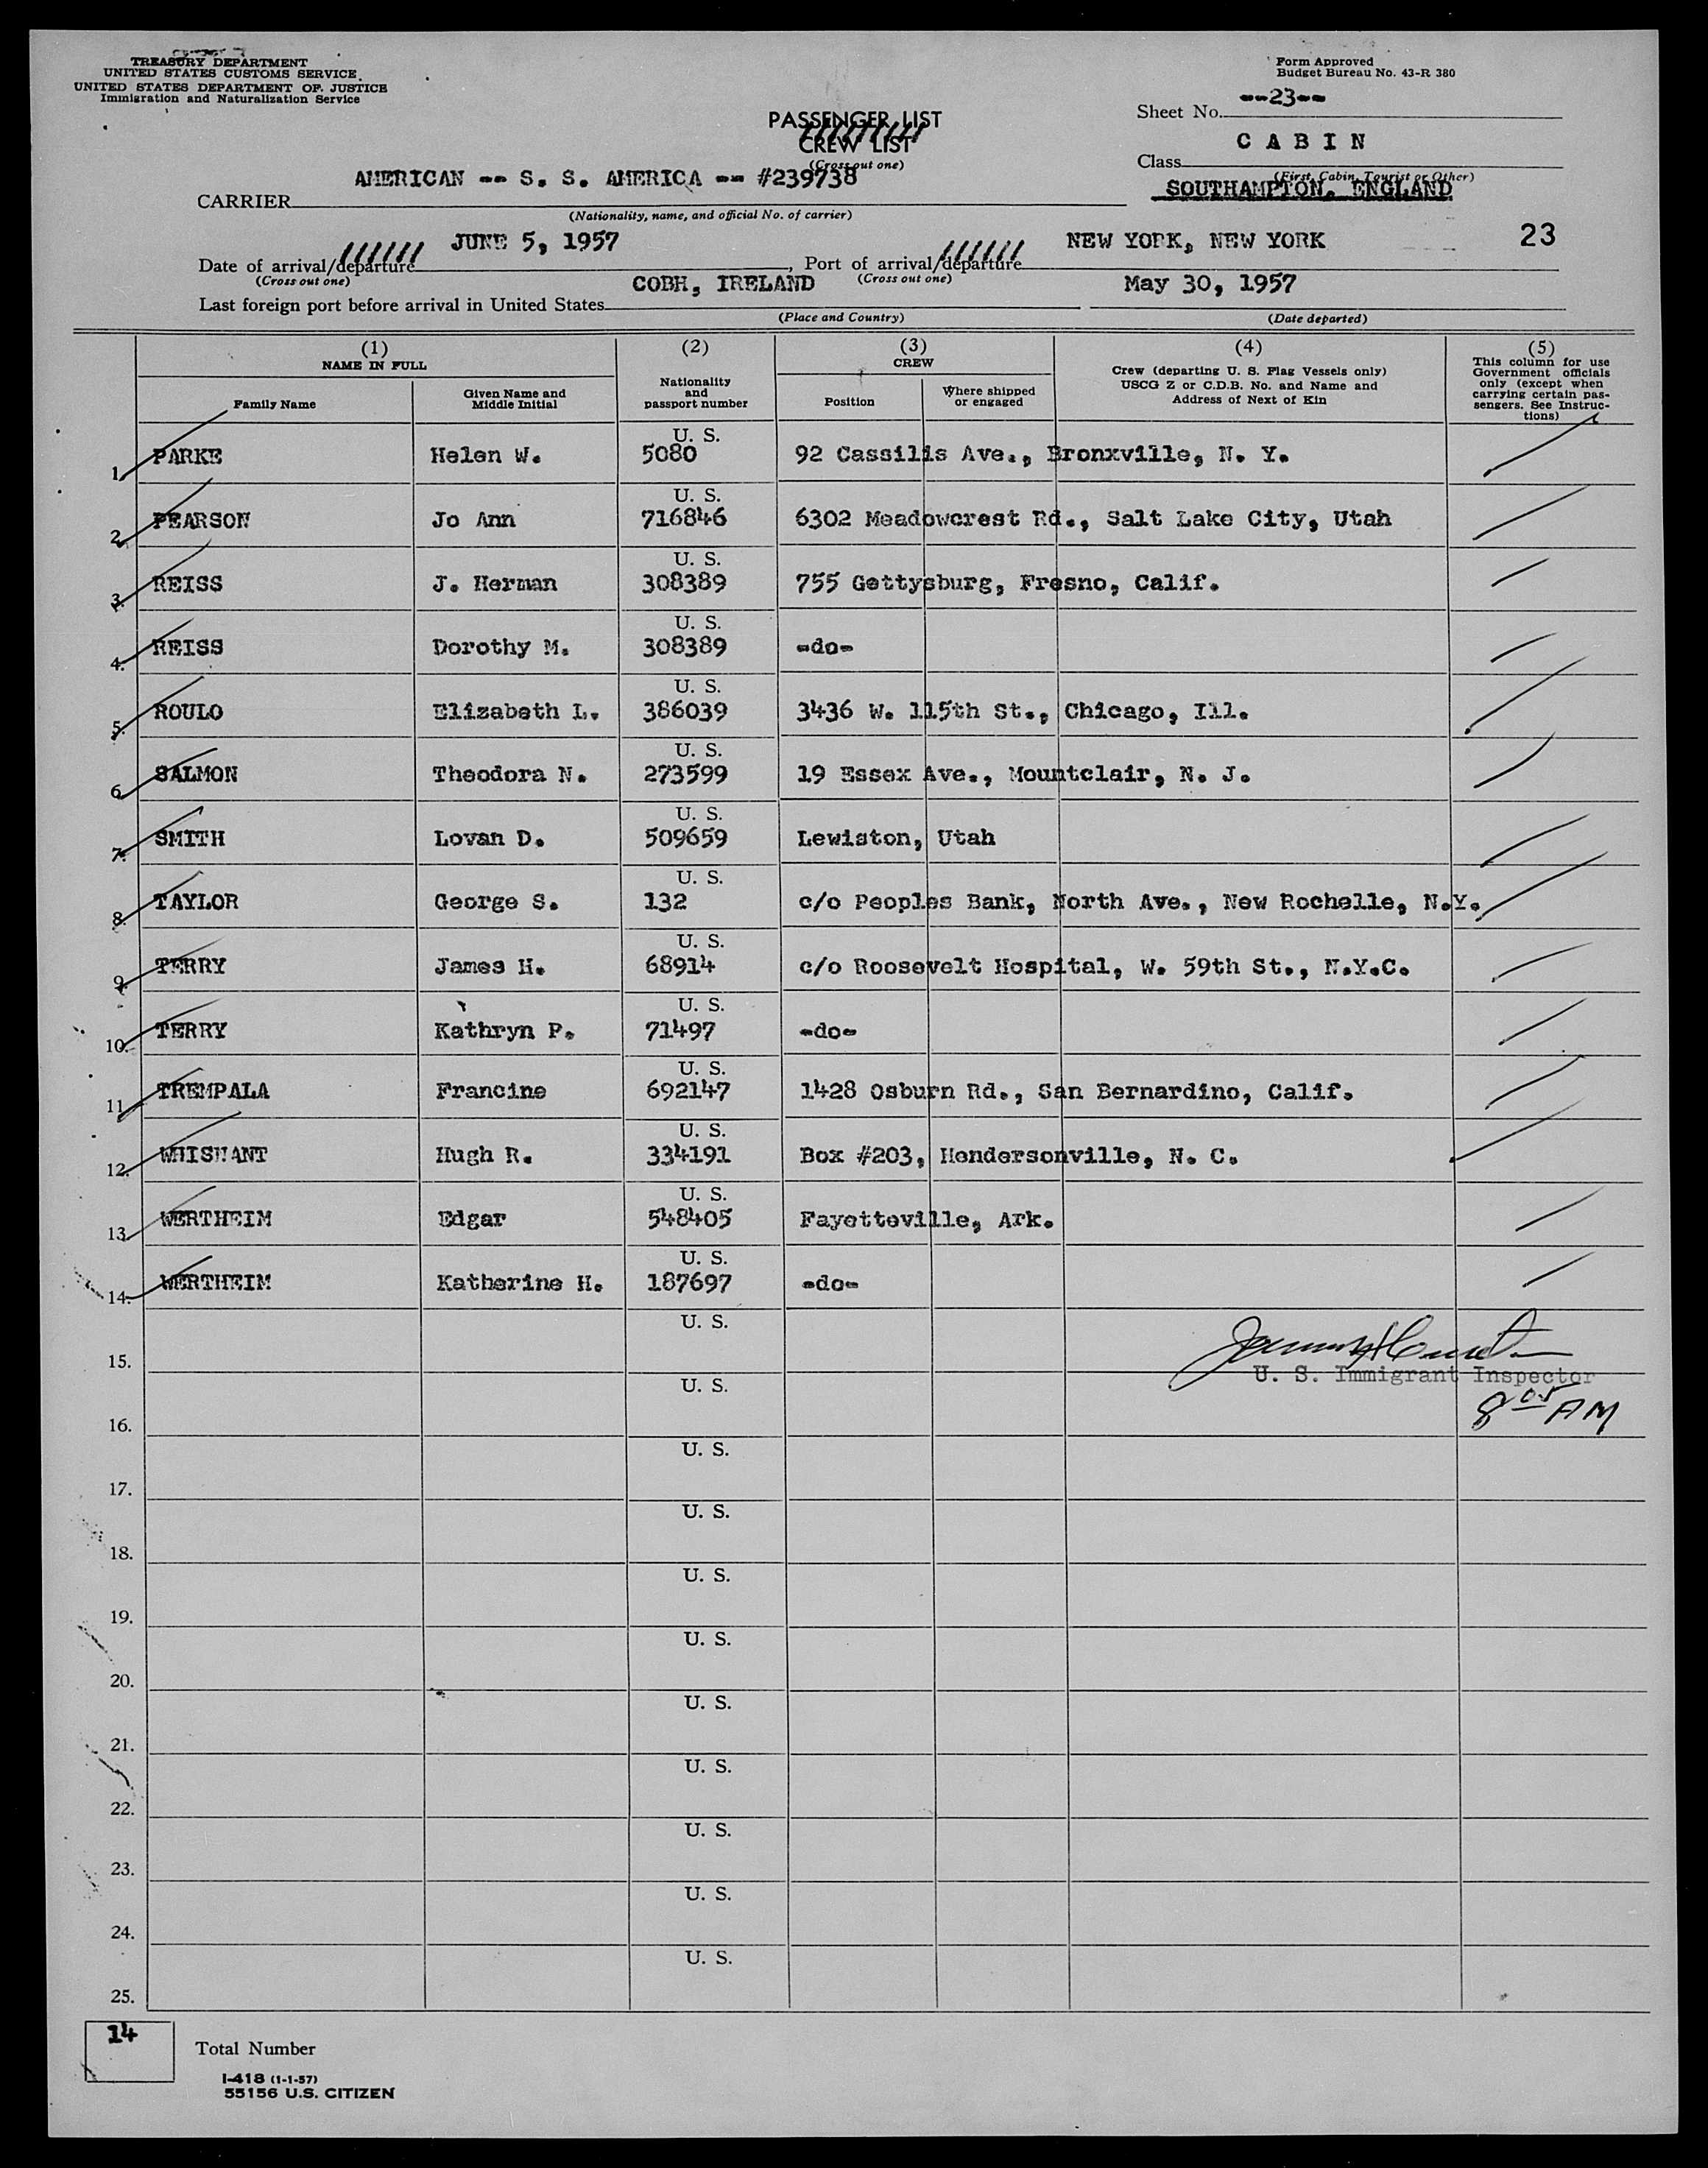 TREASURY DEPARTMENT
UNITED STATES CUSTOMS SERVICE
UNITED STATES DEPARTMENT OF JUSTICE
Immigration and Naturalization Service
Form Approved
Budget Bureau No. 43-R 380
Sheet No. --23--
PASSENGER LIST
CREW LIST
(Cross out one)
C A B I N
Class
(First, Cabin, Tourist or Other)
AMERICAN -- S. S. AMERICA -- #239738
CARRIER
(Nationality, name, and official No. of carrier)
SOUTHAMPTON, ENGLAND
23
Date of arrival/departure JUNE 5, 1957, Port of arrival/departure NEW YORK, NEW YORK
(Cross out one) (Cross out one)
Last foreign port before arrival in United States COBH, IRELAND May 30, 1957
(Place and Country) (Date departed)
(1) (2) (3) (4) (5)
NAME IN FULL
Family Name
Given Name and
Middle Initial
Nationality
and
passport number
CREW
Position
Where shipped
or engaged
Crew (departing U. S. Flag Vessels only)
USCG Z or C.D.B. No. and Name and
Address of Next of Kin
This column for use
Government officials
only (except when
carrying certain pas-
sengers. See Instruc-
tions)
U. S.
1. PARKE Helen W. 5080 92 Cassilis Ave., Bronxville, N. Y.
U. S.
2. PEARSON Jo Ann 716846 6302 Meadowcrest Rd., Salt Lake City, Utah
U. S.
3. REISS J. Herman 308389 755 Gettysburg, Fresno, Calif.
U. S.
4. REISS Dorothy M. 308389 -do-
U. S.
5. ROULO Elizabeth L. 386039 3436 W. 115th St., Chicago, Ill.
U. S.
6. SALMON Theodora N. 273599 19 Essex Ave., Mountclair, N. J.
U. S.
7. SMITH Lovan D. 509659 Lewiston, Utah
U. S.
8. TAYLOR George S. 132 c/o Peoples Bank, North Ave., New Rochelle, N.Y.
U. S.
9. TERRY James H. 68914 c/o Roosevelt Hospital, W. 59th St., N.Y.C.
U. S.
10. TERRY Kathryn P. 71497 -do-
U. S.
11. TREMPALA Francine 692147 1428 Osburn Rd., San Bernardino, Calif.
U. S.
12. WHISNANT Hugh R. 334191 Box #203, Hendersonville, N. C.
U. S.
13. WERTHEIM Edgar 548405 Fayetteville, Ark.
U. S.
14. WERTHEIM Katherine H. 187697 -do-
U. S.
15.
U. S. Immigrant Inspector
U. S.
8 05 AM
16.
U. S.
17.
U. S.
18.
U. S.
19.
U. S.
20.
U. S.
21.
U. S.
22.
U. S.
23.
U. S.
24.
U. S.
25.
14
Total Number
I-418 (1-1-57)
55156 U.S. CITIZEN